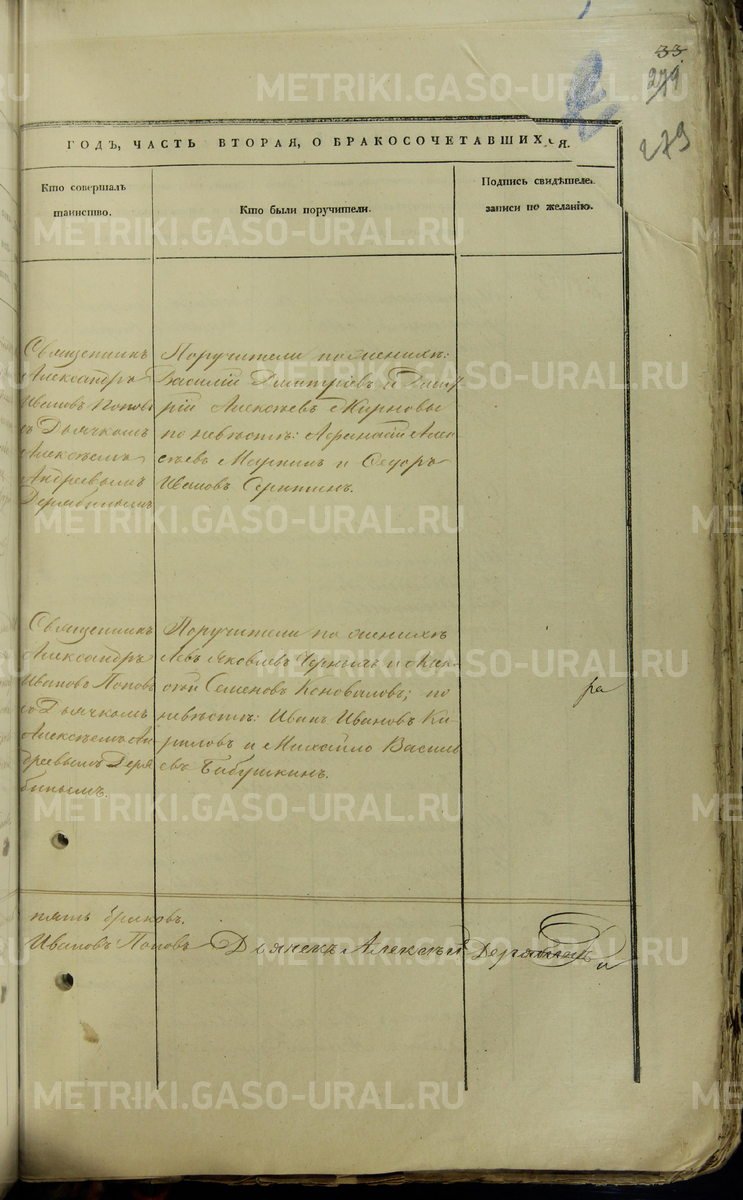 33
279
279
ГОДЪ, ЧАСТЬ ВТОРАЯ, О БРАКОСОЧЕТАВШИХСЯ.
Кто совершалъ
таинство.
Кто были поручители.
Подпись свидѣтелей
записи по желанію.
Священникъ
Александръ
Ивановъ Поповъ
съ Дьячкомъ
Алексѣемъ
Андреевымъ
Дерябинымъ
Поручители по женихѣ:
Василій Дмитріевъ и Дмит
рій Алексѣевъ
по невѣстѣ: Афанасій Алек
сѣевъ и Ѳедоръ
Ивановъ
Священникъ
Александръ
Ивановъ Поповъ
съ Дьячкомъ
Алексѣемъ Ан
дреевымъ Деря
бинымъ.
Поручители по женихѣ
Левъ Яковлевъ Черныхъ и
Семеновъ Коноваловъ; по
невѣстѣ: Иванъ Ивановъ Ки
риловъ и Михайло Василь
евъ Бабушкинъ.
ра
пять браковъ.
Ивановъ Поповъ
Дьячекъ Алексѣй Дерябинъ
METRIKI.GASO-URAL.RU